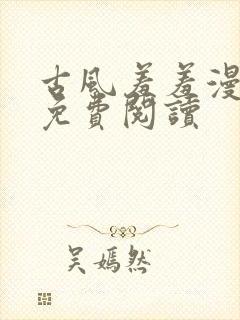 古風羞羞漫
免費閱讀
吴嫣然